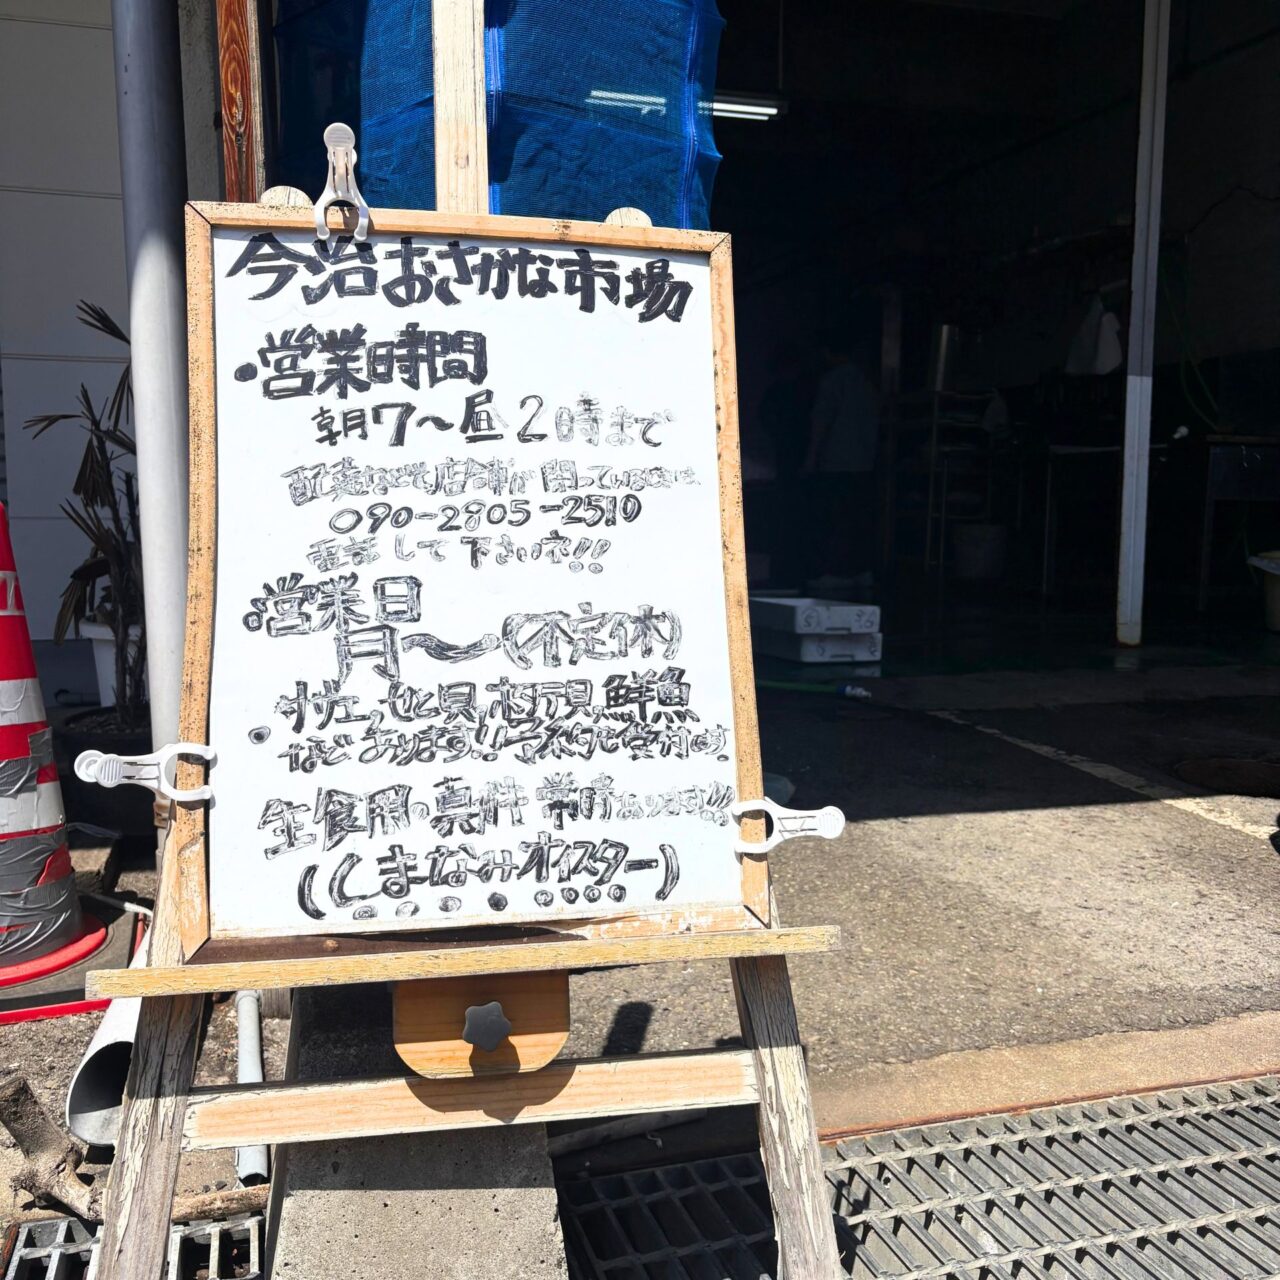 今治おさかな市場
・営業時間
朝7〜昼2時まで
配達などで店舗が閉っている場合は
090-2805-2510
電話して下さいネ!!
・営業日
月〜(不定休)
・サザエ,ヒオウギ貝,ホタテ貝,鮮魚
などあります!!予約も受付中です!
生食用の真牡蠣常時あります!!!
(しまなみオイスター)